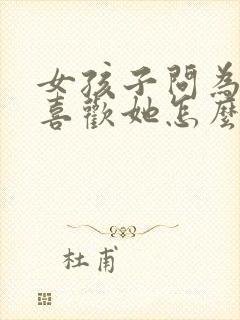 女孩子問為
喜歡她怎麼
杜甫